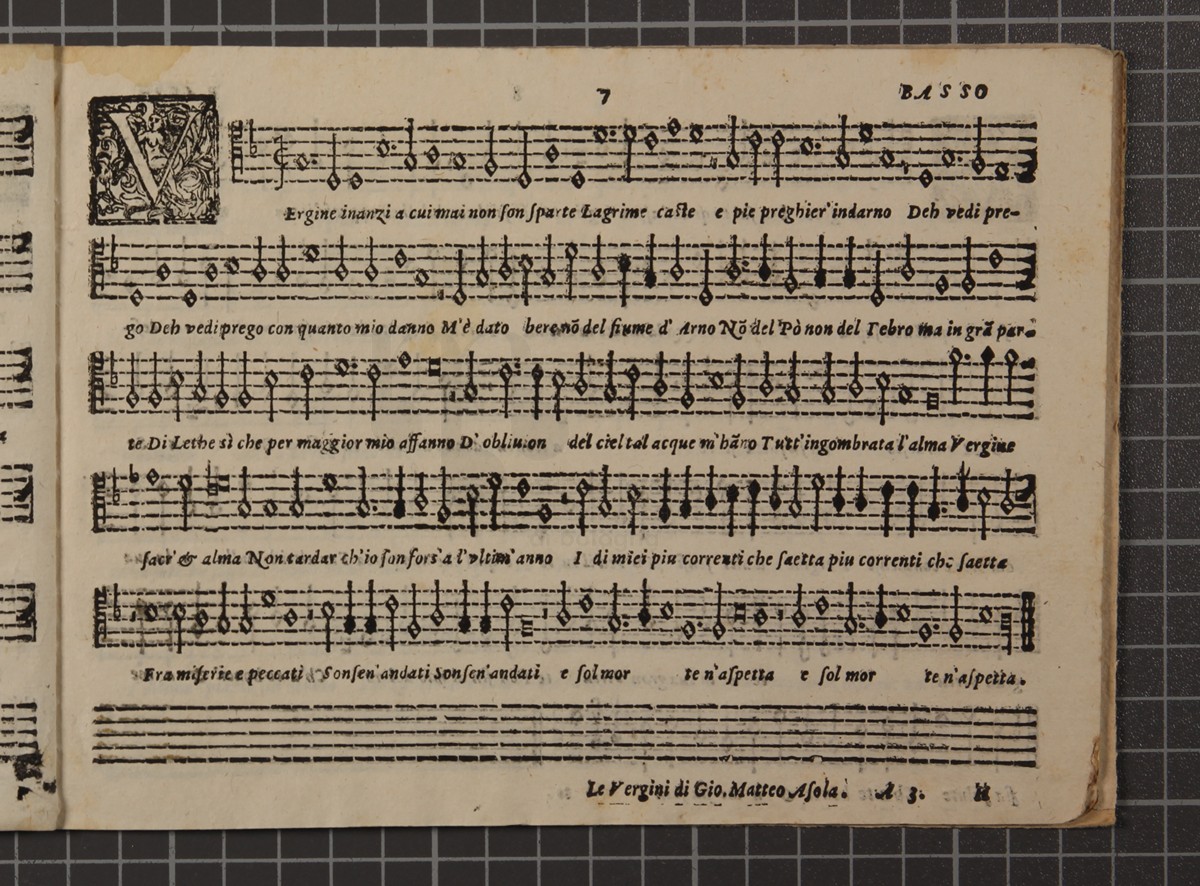 7 BASSO
VErgine inanzi a cui mai non son sparte Lagrime caste e pie preghier'indarno Deh vedi pre-
go Deh vedi prego con quanto mio danno M'è dato bere nō del fiume d' Arno Nō del Pò non del Tebro ma in grā par-
te Di Lethe sì che per maggior mio affanno D' obliuion del ciel tal acque m'hāno Tutt'ingombrata l'alma Vergine
sacr' & alma Non tardar ch'io son fors'a l'vltim'anno I di miei piu correnti che saetta piu correnti che saetta
Fra miserie e peccati Sonsen'andati Sonsen'andati e sol mor te n'aspetta e sol mor te n'aspetta.
Le Vergini di Gio. Matteo Asola. A 3. H